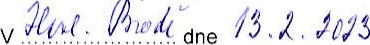 V Havl. Brodě dne 13.2.2023